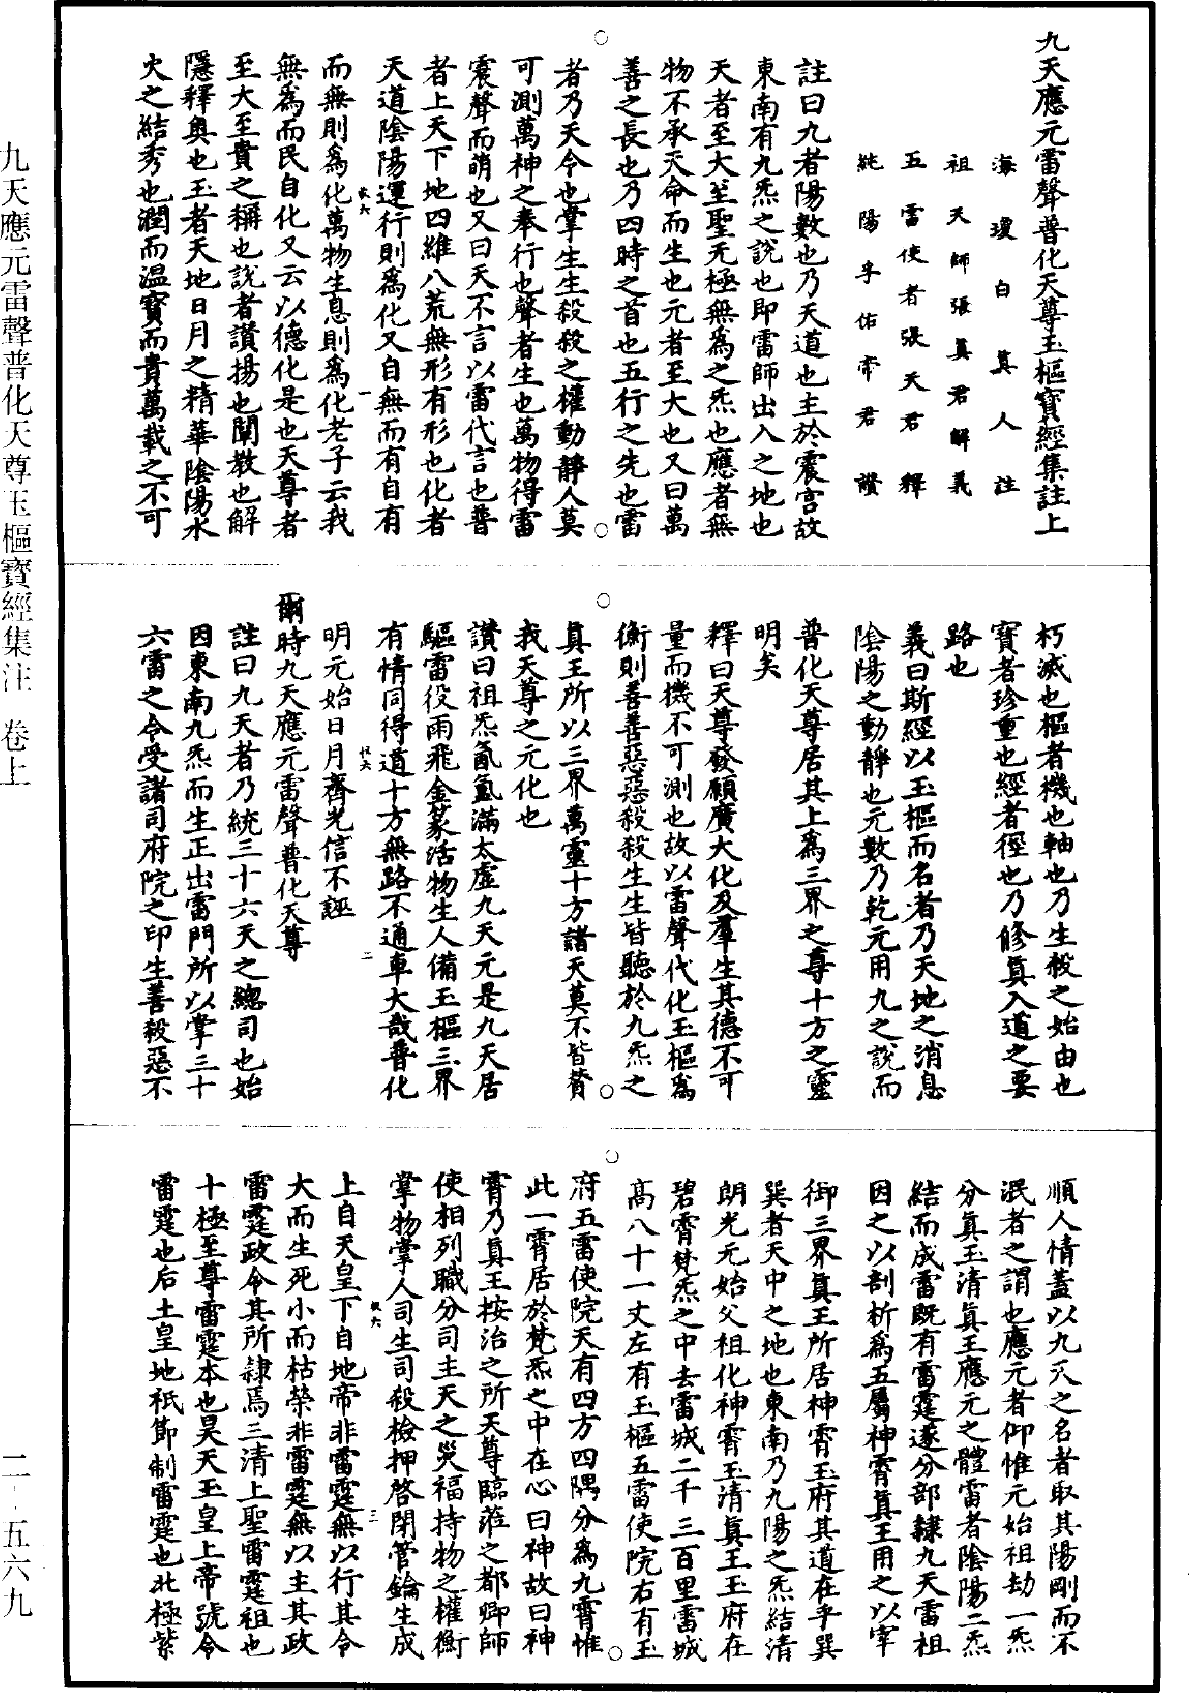 九天應元雷聲普化天尊玉樞寶經集註上
海瓊白真人註
祖天師張真君解義
五雷使者張天君釋
純陽孚佑帝君讚
註曰九者陽數也乃天道也主於震宫故
東南有九炁之說也即雷師出入之地也
天者至大至聖无極無為之炁也應者無
物不承天命而生也元者至大也又曰萬
善之長也乃四時之首也五行之先也雷
者乃天令也掌生生殺殺之權動靜人莫
可測萬神之奉行也聲者生也萬物得雷
震聲而萌也又曰天不言以雷代言也普
者上天下地四維八荒無形有形也化者
天道陰陽運行則為化又自無而有自有
一
而無則為化萬物生息則為化老子云我
無為而民自化又云以德化是也天尊者
至大至貴之稱也說者讚揚也闡教也解
隱釋奧也玉者天地日月之精華陰陽水
火之結秀也潤而温寶而貴萬載之不可
朽滅也樞者機也軸也乃生殺之始由也
寶者珍重也經者徑也乃修真入道之要
路也
義曰斯經以玉樞而名者乃天地之消息
陰陽之動靜也元數乃乾元用九之說而
普化天尊居其上為三界之尊十方之靈
明矣
釋曰天尊發願廣大化及羣生其德不可
量而機不可測也故以雷聲代化玉樞為
衡則善善惡惡殺殺生生皆聽於九炁之
真王所以三界萬靈十方諸天莫不皆賛
我天尊之元化也
讚曰祖炁氤氳滿太虛九天元是九天居
驅雷役雨飛金篆活物生人備玉樞三界
有情同得道十方無路不通車大哉普化
二
明元始日月齊光信不誣
爾時九天應元雷聲普化天尊
註曰九天者乃統三十六天之總司也始
因東南九炁而生正出雷門所以掌三十
六雷之令受諸司府院之印生善殺惡不
順人情蓋以九天之名者取其陽剛而不
泯者之謂也應元者仰惟元始祖劫一炁
分真玉清真王應元之體雷者陰陽二炁
結而成雷既有雷霆遂分部隸九天雷祖
因之以剖析為五屬神霄真王用之以宰
御三界真王所居神霄玉府其道在乎巽
巽者天中之地也東南乃九陽之炁結清
朗光元始父祖化神霄玉清真王玉府在
碧霄梵炁之中去雷城二千三百里雷城
高八十一丈左有玉樞五雷使院右有玉
府五雷使院天有四方四隅分為九霄惟
此一霄居於梵炁之中在心曰神故曰神
霄乃真王按治之所天尊臨蒞之都卿師
使相列職分司主天之災福持物之權衡
掌物掌人司生司殺檢押啓閉管鑰生成
三
上自天皇下自地帝非雷霆無以行其令
大而生死小而枯榮非雷霆無以主其政
雷霆政令其所隸焉三清上聖雷霆祖也
十極至尊雷霆本也昊天玉皇上帝號令
雷霆也后土皇地祇節制雷霆也北極紫
九天應元雷聲普化天尊玉樞寶經集注 卷上
二-五六九